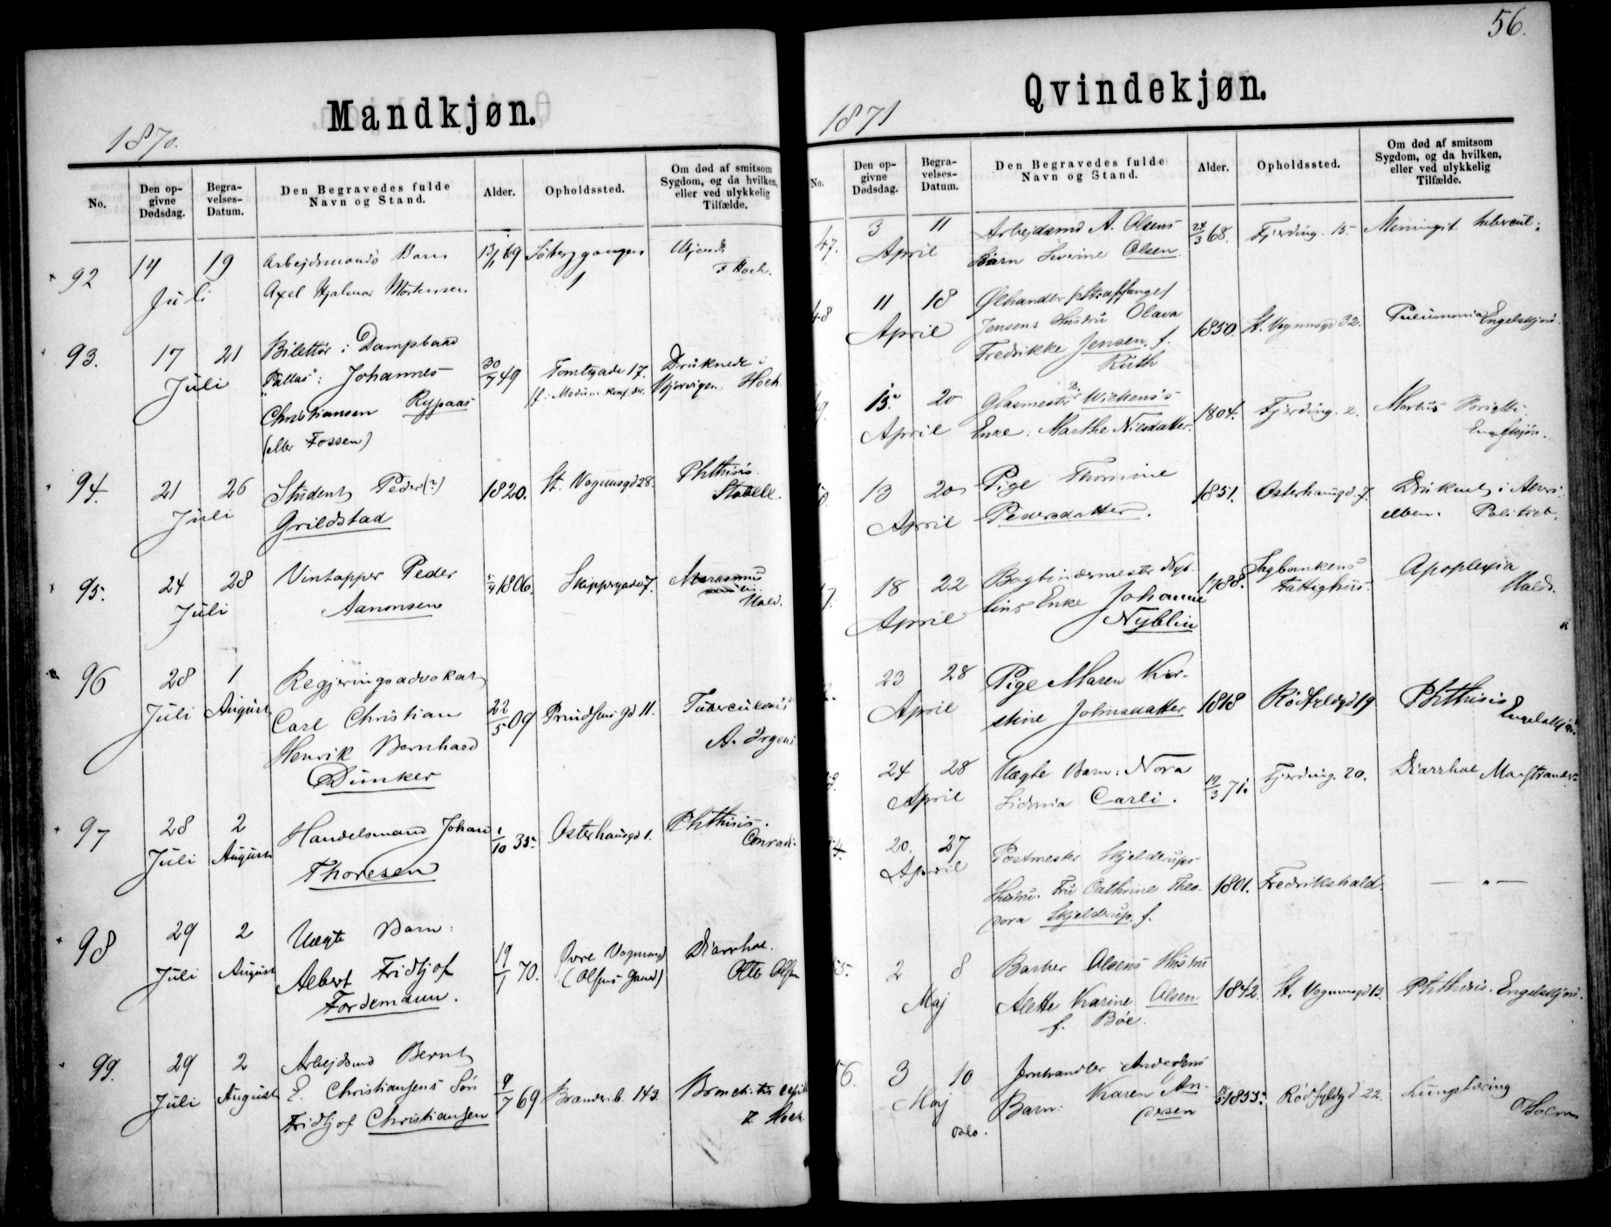 Mandkjøn.
1870.
No.
Den op-
givne
Dødsdag.
Begra-
velses-
Datum.
Den Begravedes fulde
Navn og Stand.
Alder.
Opholdssted.
Om død af smitsom
Sygdom, og da hvilken,
eller ved ulykkelig
Tilfælde.
92
14 Juli
19
Arbejdsmands Barn
Axel Hjalmar Mortensen
69
F. Hoch.
93.
17 Juli
21
Billettør i Dampbaad
"Pallas": Johannes
Christiansen Rypaas
(eller Fossen)
30/7 49
Tomtegade 17.
Druknede i
Bjørvigen. Hoch
94.
21 Juli
26
Student Peder(?)
Grildstad
1820.
St. Vognmgd 28.
Phthisis.
Stabell.
95.
24 Juli
28
Vintapper Peder
Aanonsen
1806.
Skippergade 7.
Marasmus
Hald.
96
28 Juli
1 August
Regjeringsadvokat
Carl Christian
Henrik Bernhard
Dunker
22/5 09
Prindsensgd 11.
Tuberculosis
A. Irgens
97
28 Juli
2 August
Handelsmand Johan
Thoresen
1/10 35
Osterhausgd 1.
Phthisis.
Conradi
98
29 Juli
2 August
Uægte Barn:
Albert Fridtjof
Fordemann.
19/1 70.
Øvre Vognmgd
(Olsens Gaard)
Diarrhoe.
Otto Olsen
99.
29 Juli
2 August
Arbejdsmd Bernt
E. Christiansens Søn
Fridtjof Christiansen
9/7 69
Branderib 143
Bronchitis
Hoch
56.
Qvindekjøn.
1871
No.
Den op-
givne
Dødsdag.
Begra-
velses-
Datum.
Den Begravedes fulde
Navn og Stand.
Alder.
Opholdssted.
Om død af smitsom
Sygdom, og da hvilken,
eller ved ulykkelig
Tilfælde.
47.
3 April
11
Arbejdsmd A. Olsens
Barn Severine Olsen
24/3 68.
Fjerding. 15.
Meningit. tubercul:
48
11 April
18
Ølhandler (Straffange)
Jensens Hustru Olava
Fredrikke Jensen, f.
Ruth
1850.
St. Vognmsgd 32.
Pneumonia Engelskjøn.
15 April
20
Glasmester Wickens's
Enke: Marthe Nilsdatter.
1804.
Fjerding. 2.
Engelskjøn.
13 April
20
Pige Thomine
Pedersdatter.
1851.
Osterhausgd. 7.
Druknet i Akers-
elven. Politiet.
18 April
22
Bogbindermester Nyb-
lins Enke Johanne
Nyblin
1788.
Sagbankens
Fattighus.
Apoplexia
Hald.
23 April
28
Pige Maren Kir-
stine Johnsdatter
1818
Rødfyldgd 19.
Phthisis
Engelskjøn
24 April
28
Uægte Barn: Nora
Sidonia Carli.
19/3 71.
Fjerding. 20.
Diarrhoe
20. April
27
Postmester Skjelderups
Hustru Fru Cathrine Theo-
dora Skjelderup, f.
1801.
Fredrikshald.
— " —
55.
2 Maj
8
Barber Olsens Hustru
Alette Karine Olsen
f. Bøe.
1842.
St. Vognmsgd 13.
Phthisis. Engelskjøn.
56.
3 Maj
10
Oslo.
Jernhandler Andersens
Barn: Karen An-
dersen
1855.
Rødfyldgd 22.
Lungetæring